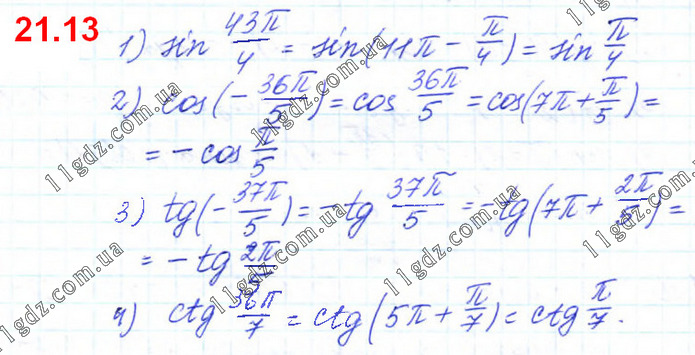 21.13
1) sin 43π/4 = sin(11π − π/4) = sin π/4
2) cos(−36π/5) = cos 36π/5 = cos(7π + π/5) =
= − cos π/5
3) tg(−37π/5) = −tg 37π/5 = −tg(7π + 2π/5) =
= − tg 2π/5
4) ctg 36π/7 = ctg(5π + π/7) = ctg π/7.
11gdz.com.ua
11gdz.com.ua
11gdz.com.ua
11gdz.com.ua
11gdz.com.ua
11gdz.com.ua
11gdz.com.ua
11gdz.com.ua